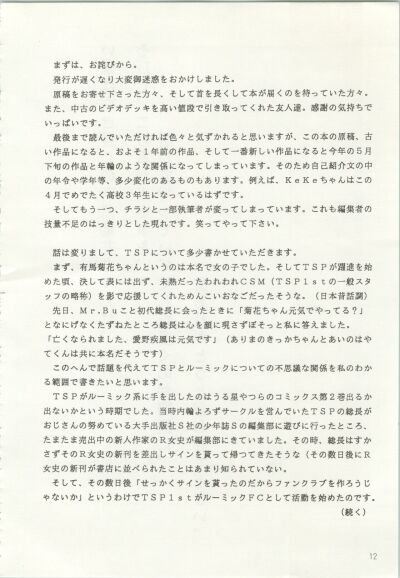 まずは、お詫びから。
発行が遅くなり大変御迷惑をおかけしました。
原稿をお寄せ下さった方々、そして首を長くして本が届くのを待っていた方々。
また、中古のビデオデッキを高い値段で引き取ってくれた友人達。感謝の気持ちで
いっぱいです。
最後まで読んでいただければ色々と気ずかれると思いますが、この本の原稿、古
い作品になると、およそ1年前の作品、そして一番新しい作品になると今年の5月
下旬の作品と年輪のような関係になってしまっています。そのため自己紹介文の中
の年令や学年等、多少変化のあるものもあります。例えば、KeKeちゃんはこの
4月でめでたく高校3年生になっているはずです。
そしてもう一つ、チラシと一部執筆者が変ってしまっています。これも編集者の
技量不足のはっきりとした現れです。笑ってやって下さい。
話は変りまして、TSPについて多少書かせていただきます。
まず、有馬菊花ちゃんというのは本名で女の子でした。そしてTSPが躍進を始
めた頃、決して表には出ず、未熟だったわれわれCSM(TSP1stの一般スタ
ッフの略称)を影で応援してくれためんこいおなごだったそうな。(日本昔話調)
先日、Mr.Buこと初代総長に会ったときに「菊花ちゃん元気でやってる?」
となにげなくたずねたところ総長は心を顔に現さずぼそっと私に答えました。
「亡くなられました、愛野疾風は元気です」(ありまのきっかちゃんとあいのはや
てくんは共に本名だそうです)
このへんで話題を代えてTSPとルーミックについての不思議な関係を私のわか
る範囲で書きたいと思います。
TSPがルーミック系に手を出したのはうる星やつらのコミックス第2巻出るか
出ないかという時期でした。当時内輪よろずサークルを営んでいたTSPの総長が
おじさんの努めている大手出版社S社の少年誌Sの編集部に遊びに行ったところ、
たまたま売出中の新人作家のR女史が編集部にきていました。その時、総長はすか
さずそのR女史の新刊を差出しサインを貰って帰ってきたそうな(その数日後にR
女史の新刊が書店に並べられたことはあまり知られていない。
そして、その数日後「せっかくサインを貰ったのだからファンクラブを作ろうじ
ゃないか」というわけでTSP1stがルーミックFCとして活動を始めたのです。
(続く)
12